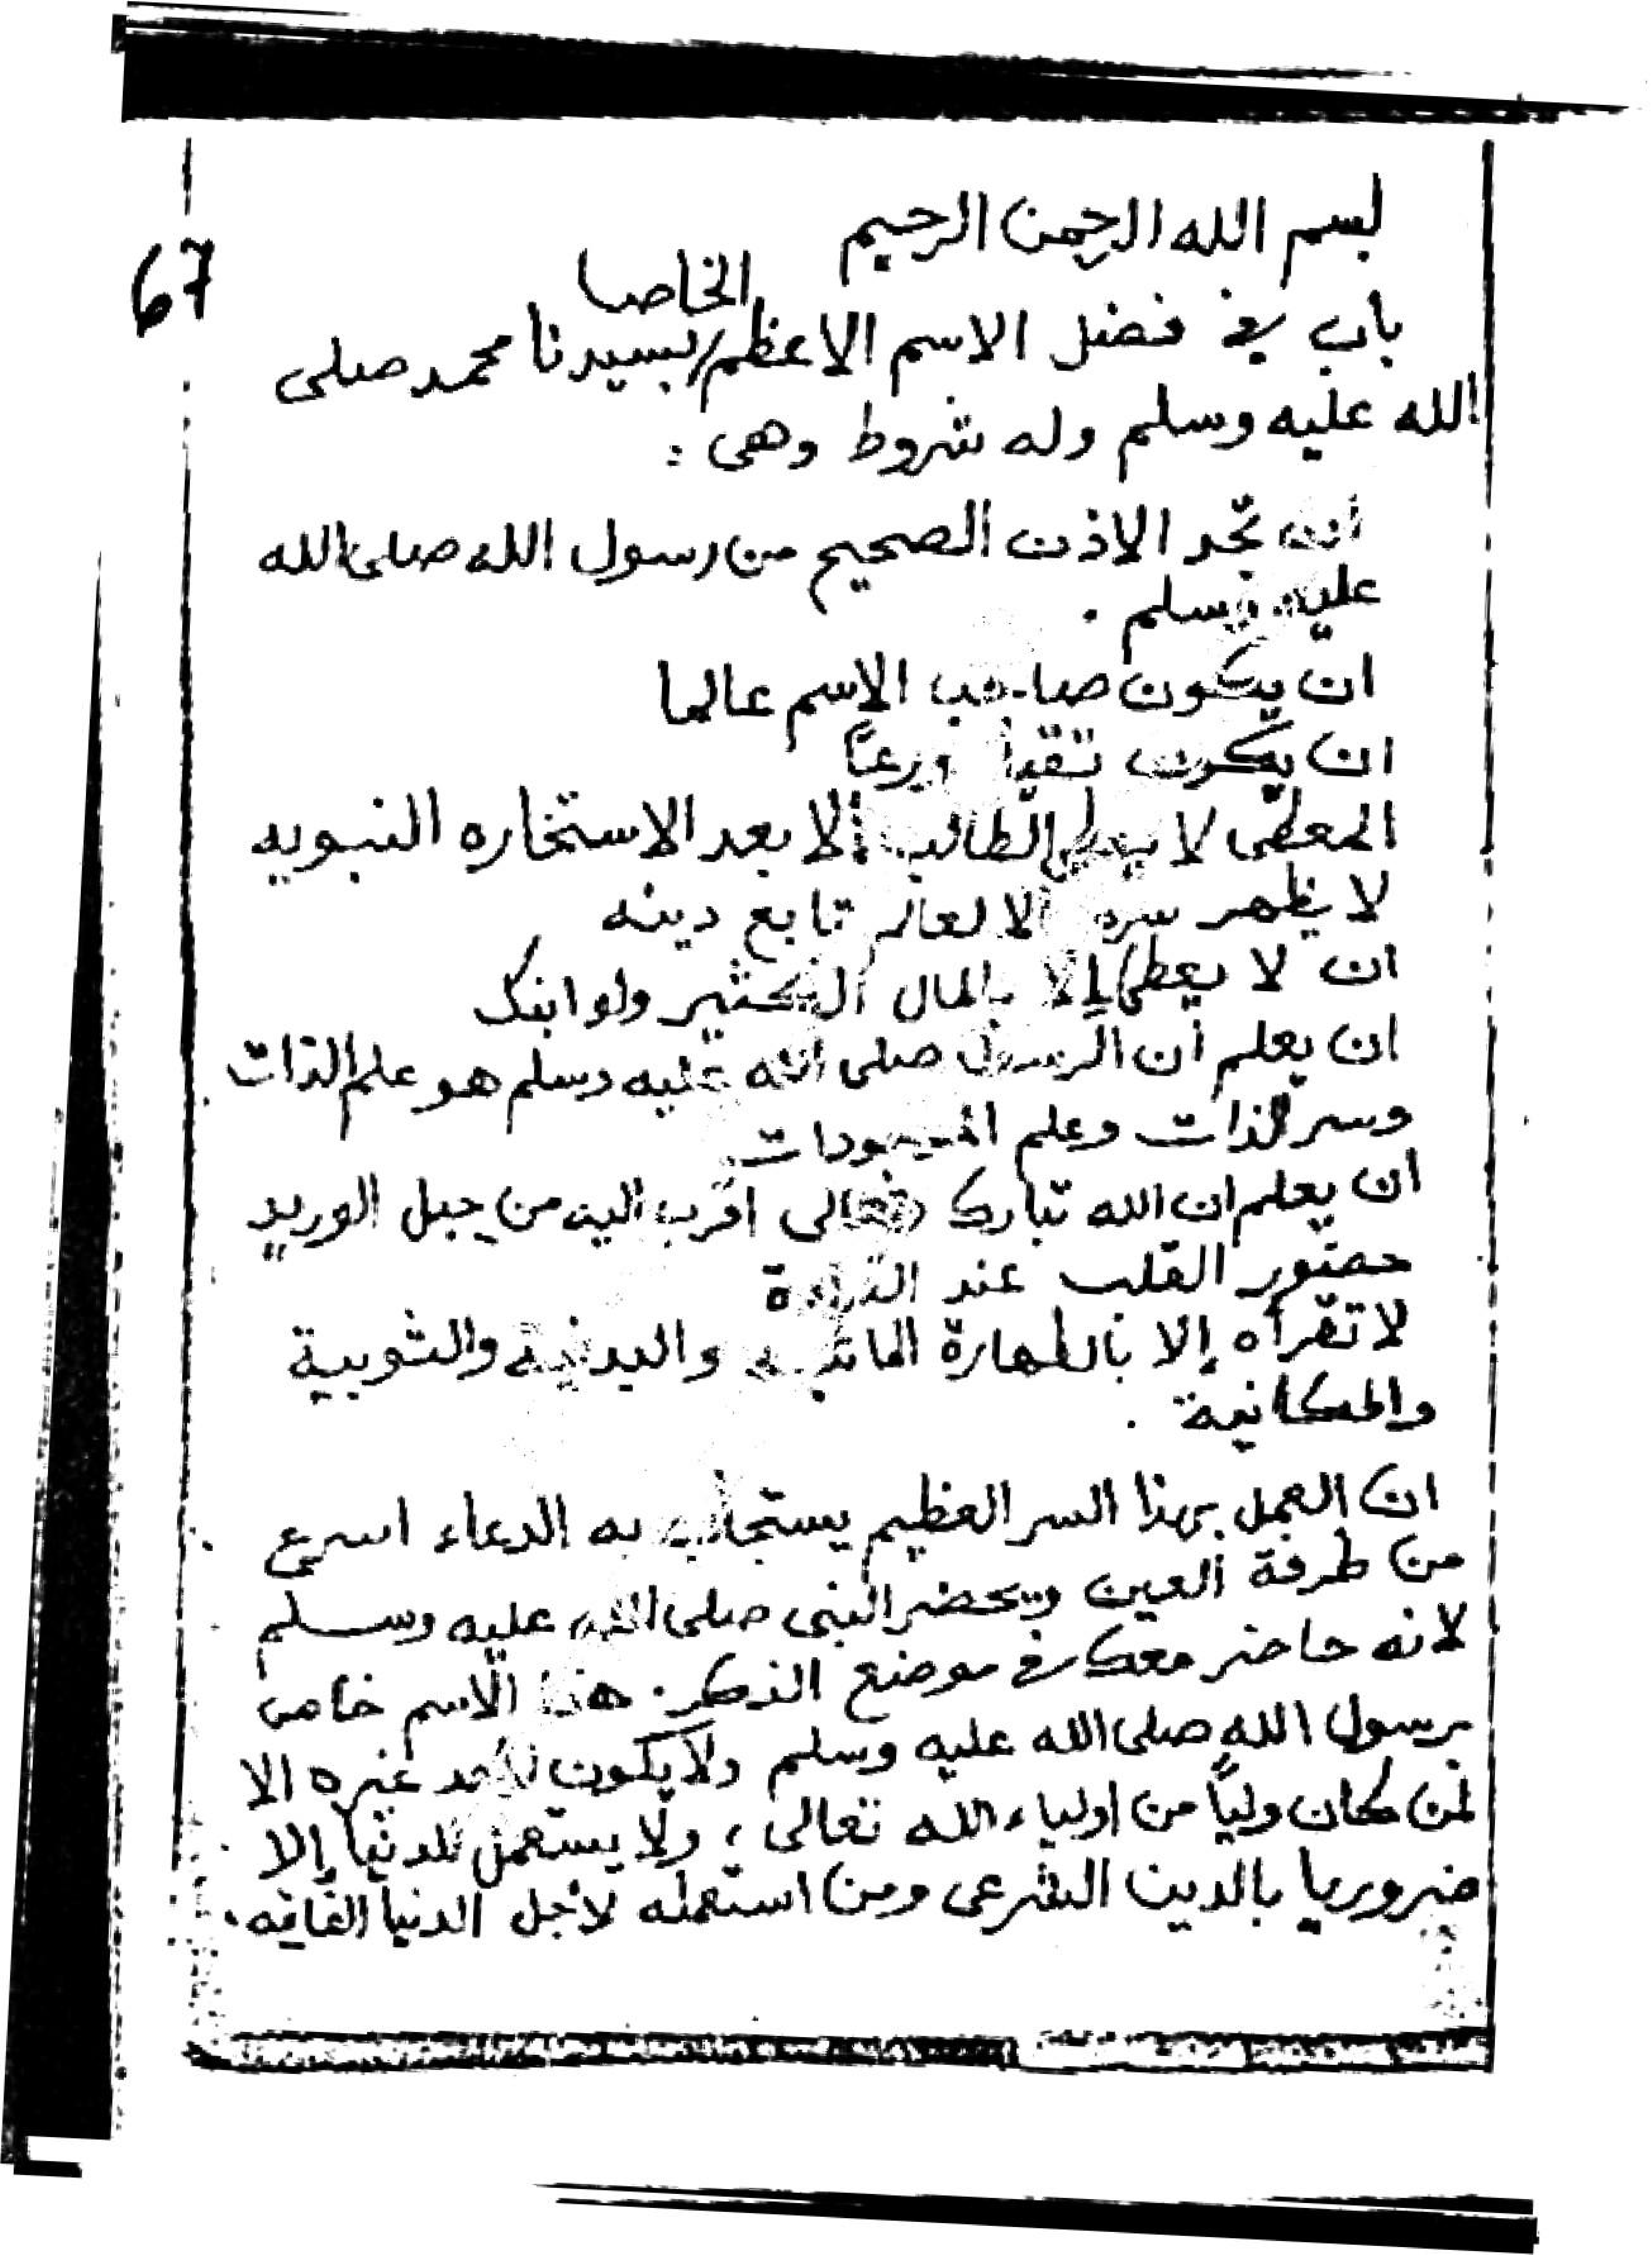 بسم الله الرحمن الرحيم
67
الخاص
باب في فضل الاسم الاعظم بسيدنا محمد صلى
الله عليه وسلم وله شروط وهى :
ان تجد الاذن الصحيح من رسول الله صلى الله
عليه وسلم .
ان يكون صاحب الاسم عالما
ان يكون تقيا ورعاً
المعطى لا يعطى الطالب إلا بعد الاستخاره النبويه
لا يظهر سره الا لعالم تابع دينه
ان لا يعطى إلا بالمال الكثير ولو ابنك
ان يعلم ان الرسول صلى الله عليه وسلم هو علم الذات
وسر الذات وعلم الموجودات
ان يعلم ان الله تبارك وتعالى اقرب اليه من حبل الوريد
حضور القلب عند القراءة
لا تقرأه إلا بالطهارة المائيه والبدنية والثوبية
والمكانية .
ان العمل بهذا السر العظيم يستجاب به الدعاء اسرع
من طرفة العين ويحضر النبى صلى الله عليه وسلم
لانه حاضر معك في موضع الذكر . هذا الاسم خاص
برسول الله صلى الله عليه وسلم ولا يكون لأحد غيره الا
لمن كان ولياً من اولياء الله تعالى ، ولا يستعمل للدنيا إلا
ضروريا بالدين الشرعى ومن استعمله لأجل الدنيا الفانيه .